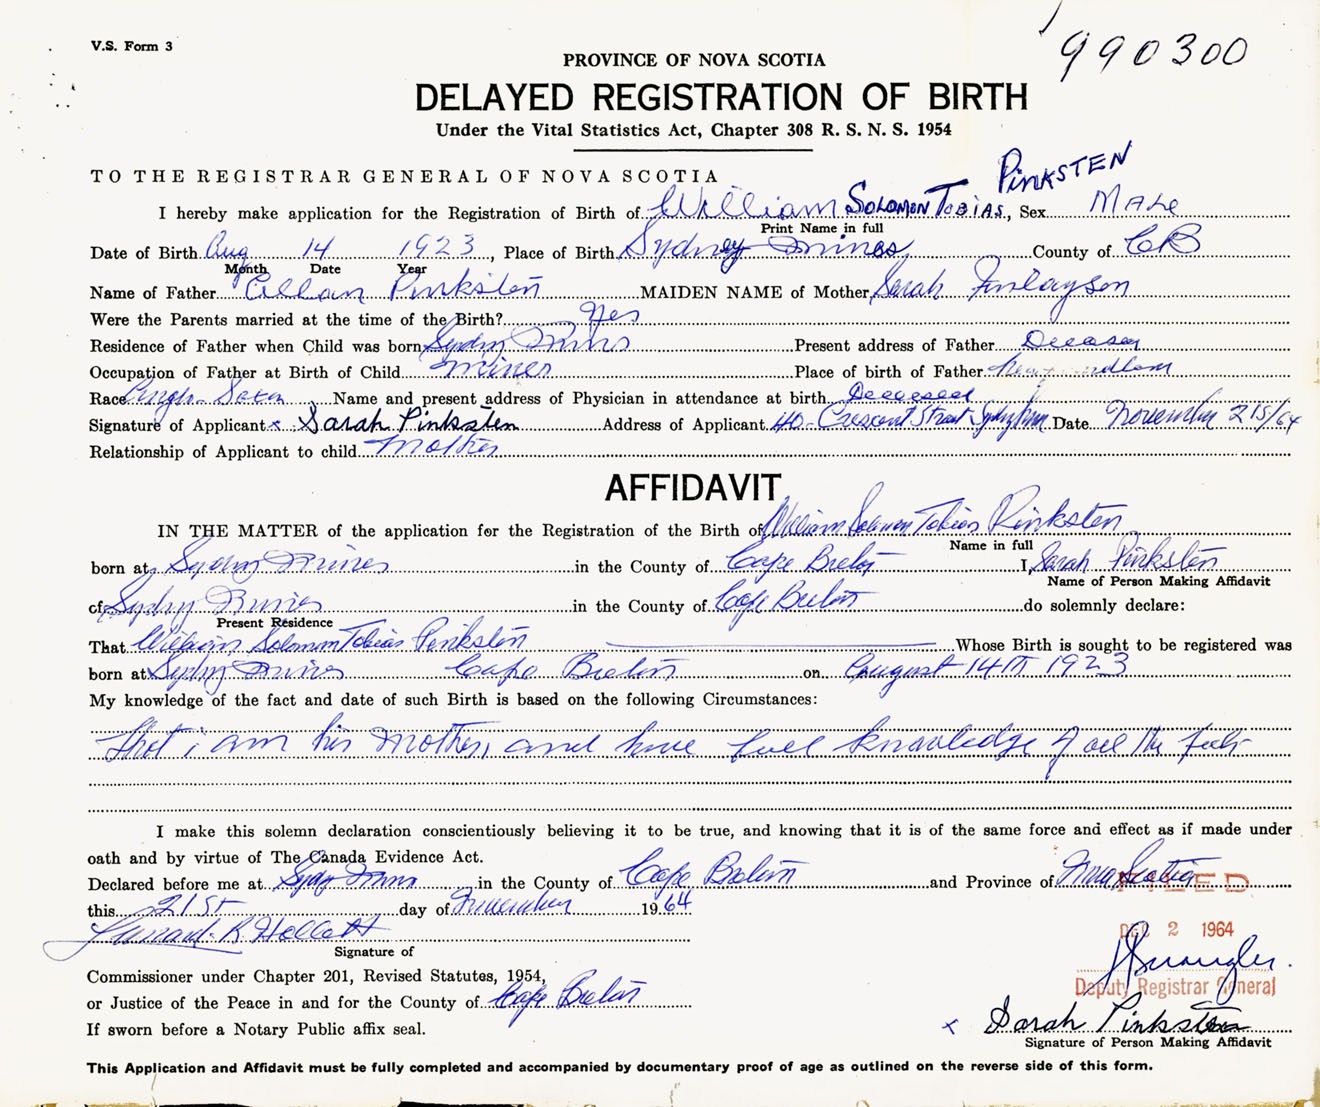 V.S. Form 3
990300
PROVINCE OF NOVA SCOTIA
DELAYED REGISTRATION OF BIRTH
Under the Vital Statistics Act, Chapter 308 R. S. N. S. 1954
TO THE REGISTRAR GENERAL OF NOVA SCOTIA
PINKSTEN
I hereby make application for the Registration of Birth of William SOLOMON TOBIAS, Sex Male
Print Name in full
Date of Birth Aug 14 1923, Place of Birth Sydney Mines County of CB
Month Date Year
Name of Father Allan Pinksten MAIDEN NAME of Mother Sarah Finlayson
Were the Parents married at the time of the Birth? Yes
Residence of Father when Child was born Sydney Mines Present address of Father
Occupation of Father at Birth of Child miner Place of birth of Father
Race Anglo-Saxon Name and present address of Physician in attendance at birth Deceased
Signature of Applicant x Sarah Pinksten Address of Applicant 40- Crescent Street Sydney Mines Date November 21st/64
Relationship of Applicant to child Mother
AFFIDAVIT
IN THE MATTER of the application for the Registration of the Birth of William Solomon Tobias Pinksten
Name in full
born at Sydney Mines in the County of Cape Breton I, Sarah Pinksten
Name of Person Making Affidavit
of Sydney Mines in the County of Cape Breton do solemnly declare:
Present Residence
That William Solomon Tobias Pinksten Whose Birth is sought to be registered was
born at Sydney Mines Cape Breton on August 14th 1923
My knowledge of the fact and date of such Birth is based on the following Circumstances:
that i am his Mother, and have full knowledge of all the facts
I make this solemn declaration conscientiously believing it to be true, and knowing that it is of the same force and effect as if made under
oath and by virtue of The Canada Evidence Act.
Declared before me at Sydney Mines in the County of Cape Breton and Province of Nova Scotia
FILED
this 21st day of November 1964
DEC 2 1964
R. Hollett
Signature of
Commissioner under Chapter 201, Revised Statutes, 1954,
Deputy Registrar General
or Justice of the Peace in and for the County of Cape Breton
x Sarah Pinksten
If sworn before a Notary Public affix seal.
Signature of Person Making Affidavit
This Application and Affidavit must be fully completed and accompanied by documentary proof of age as outlined on the reverse side of this form.